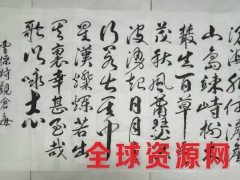 山島竦峙樹
叢生百草
茂秋風蕭瑟
波湧起日月
行若出其中
星漢燦爛若出
其裏幸甚至哉
歌以詠志
曹操詩觀滄海
全球资源网